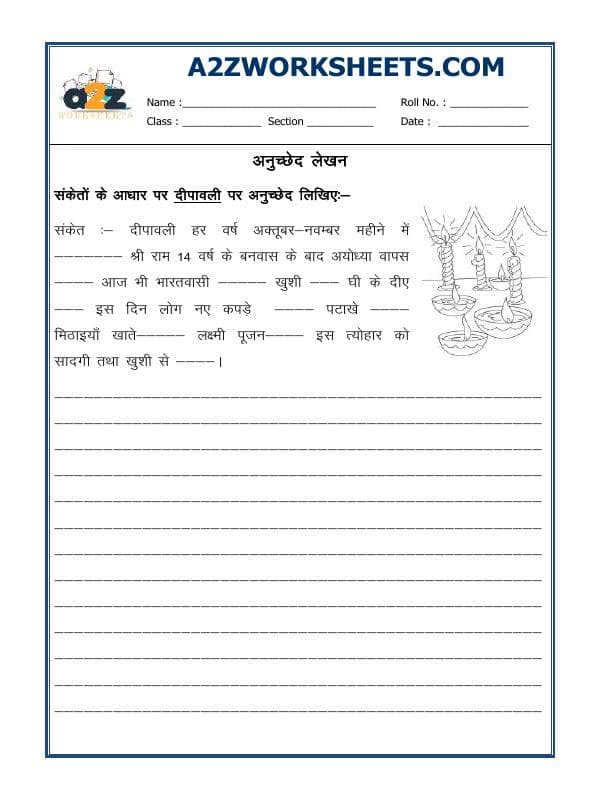 A2ZWORKSHEETS.COM
a2z
WORKSHEETS
Name :______________________________ Roll No. : ____________
Class : ____________ Section __________ Date : ______________
अनुच्छेद लेखन
संकेतों के आधार पर दीपावली पर अनुच्छेद लिखिएः–
संकेत :– दीपावली हर वर्ष अक्तूबर–नवम्बर महीने में
––––––– श्री राम 14 वर्ष के बनवास के बाद अयोध्या वापस
–––– आज भी भारतवासी ––––– खुशी ––– घी के दीए
––– इस दिन लोग नए कपड़े –––– पटाखे –––
मिठाइयाँ खाते––––– लक्ष्मी पूजन–––– इस त्योहार को
सादगी तथा खुशी से ––––।